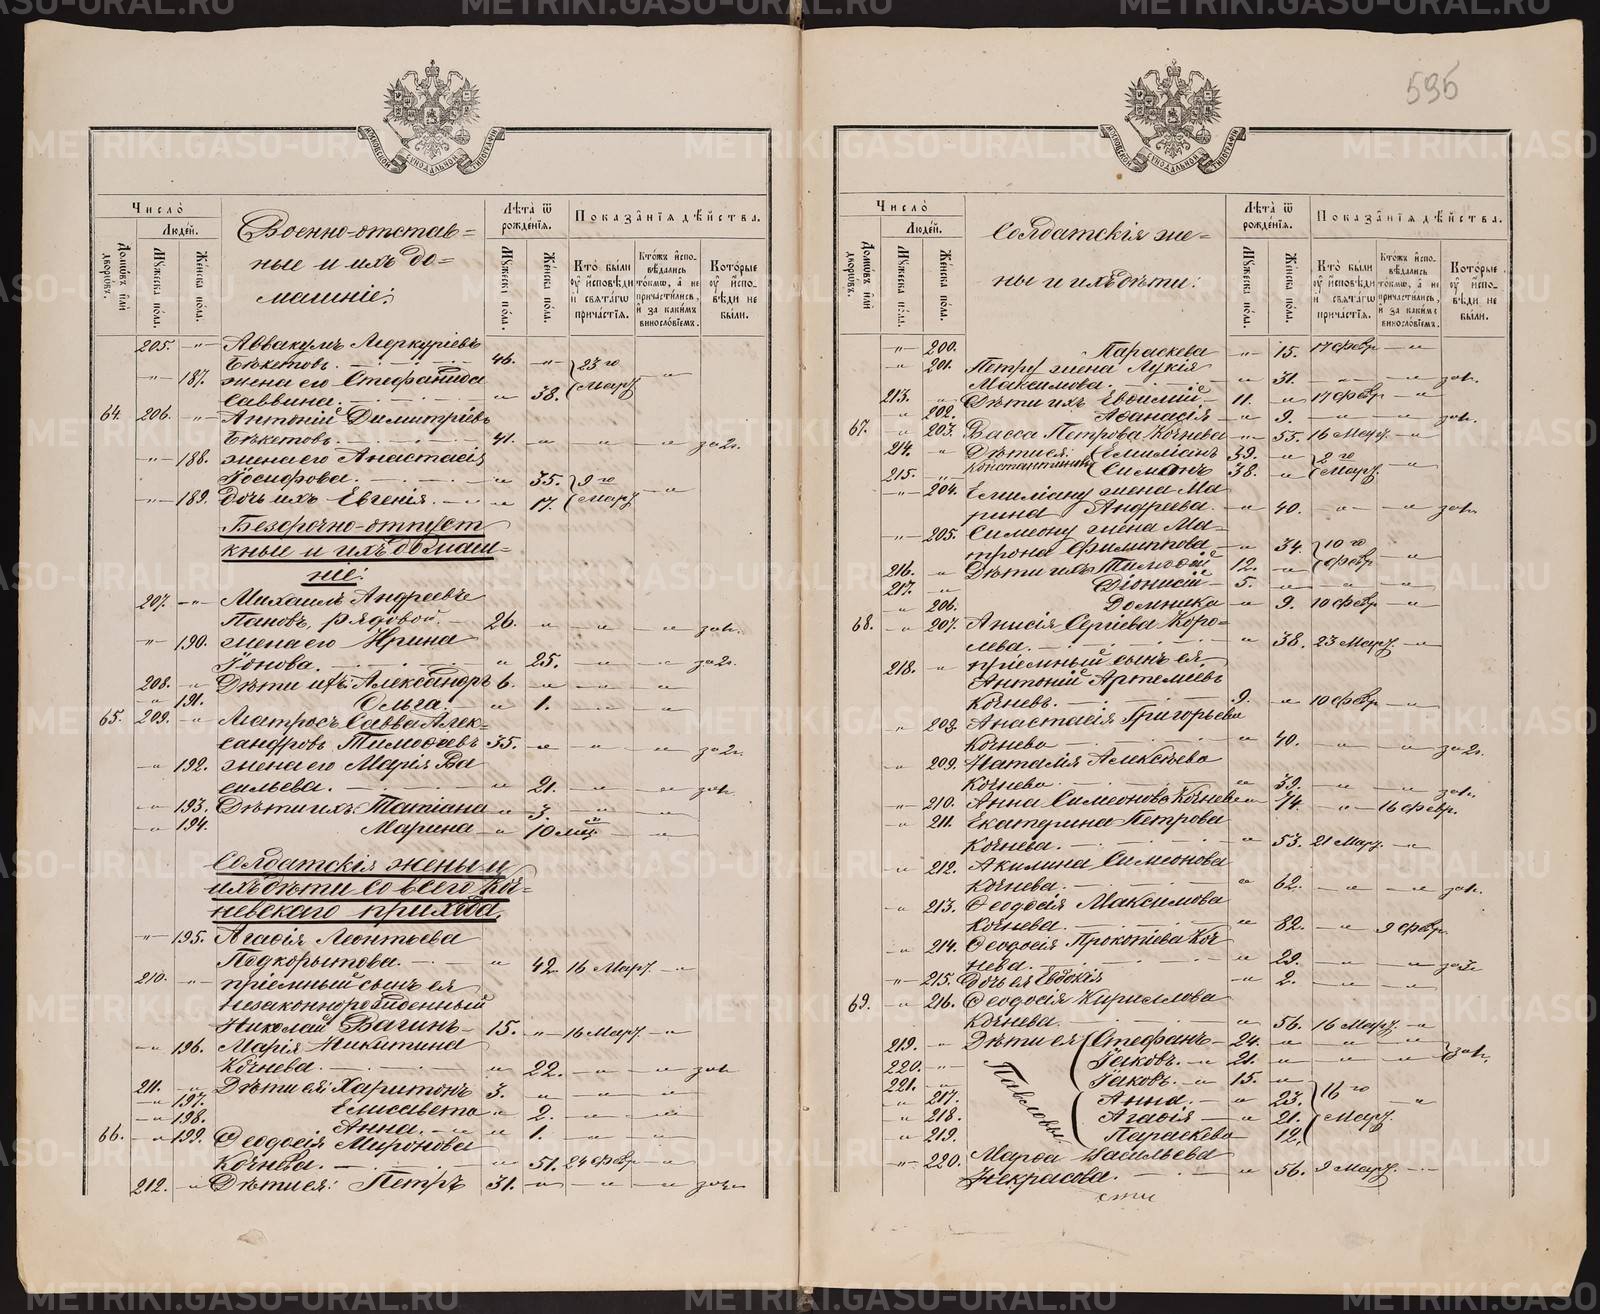 595
МОСКОВСКОЙ СѴНОДАЛЬНОЙ ТИПОГРАФІИ
Число̀
Людей.
Домѡвъ и҆лѝ дворѡвъ.
Мꙋжеска пола.
Женска пола.
Военно-отстав-
ные и ихъ до-
машніе:
Лѣта ѿ рожденїѧ.
Мꙋжеска пола.
Женска пола.
Показанїѧ дѣйства.
Кто̀ бы́ли ᲂу҆ и҆сповѣди и҆ свѧтагѡ причастїѧ.
Кто́жъ и҆спо-вѣдались то́кмѡ, а҆ не причастились, и҆ за каки́мъ винословїемъ.
Кото́рые ᲂу҆ и҆спо-вѣди не бы́ли.
205. -"- Аввакумъ Меркуріевъ
Бѣкетовъ. 46. " 23 го
-"- 187. жена его Стефанида Март.
Саввина. " 38.
64. 206. -"- Антоній Димитріевъ
Бѣкетовъ. 41. за 2 г.
-"- 188. жена его Анастасія
Іосифова. " 35. 9 го
-"- 189. Дочь ихъ Евгенія. " 17. Март.
Безсрочно-отпуст
кные и ихъ домаш-
ніе:
207. -"- Михаилъ Андреевъ
Пановъ, рядовой. 26.
-"- 190. жена его Ирина
Іонова. " 25. за 2 г.
208. -"- Дѣти ихъ: Александръ 6.
-"- 191. Ольга. " 1.
65. 209. -"- Матросъ Савва Алек-
сандровъ Тимофеевъ 35. за 2 г.
-"- 192. жена его Марія Ва
сильева. " 21.
-"- 193. Дѣти ихъ: Татіана " 3.
-"- 194. Марина " 10 мѣс.
Солдатскія жены и
ихъ дѣти со всего Коч-
невскаго прихода.
-"- 195. Агафія Леонтьева
Подкорытова. " 42. 16 Март.
210. -"- пріемный сынъ ея
незаконнорожденный
Николай Вагинъ 15. " 16 Март.
-"- 196. Марія Никитина
Кочнева. " 22.
211. -"- Дѣти ея: Харитонъ 3.
-"- 197. Елисавета " 2.
-"- 198. Анна. " 1.
66. -"- 199. Феодосія Миронова
Кочнева. " 51. 24 февр
212. -"- Дѣти ея: Петръ 31.
МОСКОВСКОЙ СѴНОДАЛЬНОЙ ТИПОГРАФІИ
Число̀
Людей.
Домѡвъ и҆лѝ дворѡвъ.
Мꙋжеска пола.
Женска пола.
Солдатскія же-
ны и ихъ дѣти:
Лѣта ѿ рожденїѧ.
Мꙋжеска пола.
Женска пола.
Показанїѧ дѣйства.
Кто̀ бы́ли ᲂу҆ и҆сповѣди и҆ свѧтагѡ причастїѧ.
Кто́жъ и҆спо-вѣдались то́кмѡ, а҆ не причастились, и҆ за каки́мъ винословїемъ.
Кото́рые ᲂу҆ и҆спо-вѣди не бы́ли.
-"- 200. Параскева " 15. 17 февр
-"- 201. Петру жена Лукія
Максимова. " 31.
213. -"- Дѣти ихъ Евфимій 11. " 17 февр
-"- 202. Афанасія " 9.
67. -"- 203. Васса Петрова Кочнева " 55. 16 Март.
214. -"- Дѣти ея: Емиліанъ 39. " 2 го
215. -"- Константиновы Симонъ 38. " Март.
-"- 204. Емиліану жена Ма
рина Андреева. " 40.
-"- 205. Симеону жена Ма-
трона Филиппова " 34. 10 го
216. -"- Дѣти ихъ Тимофей 12. " февр
217. -"- Діонисій 5.
-"- 206. Домника " 9. 10 февр
68. -"- 207. Анисія Сергіева Коро-
лева. " 38. 23 Март.
218. -"- пріемный сынъ ея
Антоній Артеміевъ
Кочневъ. 9. " 10 февр
-"- 208. Анастасія Григорьева
Кочнева " 40. за 2 г.
-"- 209. Наталія Алексѣева
Кочнева. " 39.
-"- 210. Анна Симеонова Кочнева " 74. " 16 февр.
-"- 211. Екатерина Петрова
Кочнева. " 53. 21 Март.
-"- 212. Акилина Симеонова
Кочнева. " 62.
-"- 213. Феодосія Максимова
Кочнева. " 82. " 9 февр.
-"- 214. Феодосія Прокопіева Коч
нева. " 29.
-"- 215. Дочь ея Евдокія " 2.
69. -"- 216. Феодосія Кириллова
Кочнева. " 56. 16 Март.
219. -"- Дѣти ея Стефанъ 24.
220. -"- Іаковъ. 21.
221. -"- Павловы Іаковъ. 15.
-"- 217. Анна. " 23. 16 го
-"- 218. Агафія " 21. Март.
-"- 219. Параскева 12.
-"- 220. Марфа Васильева
Некрасова. " 56. 9 Март.
METRIKI.GASO-URAL.RU